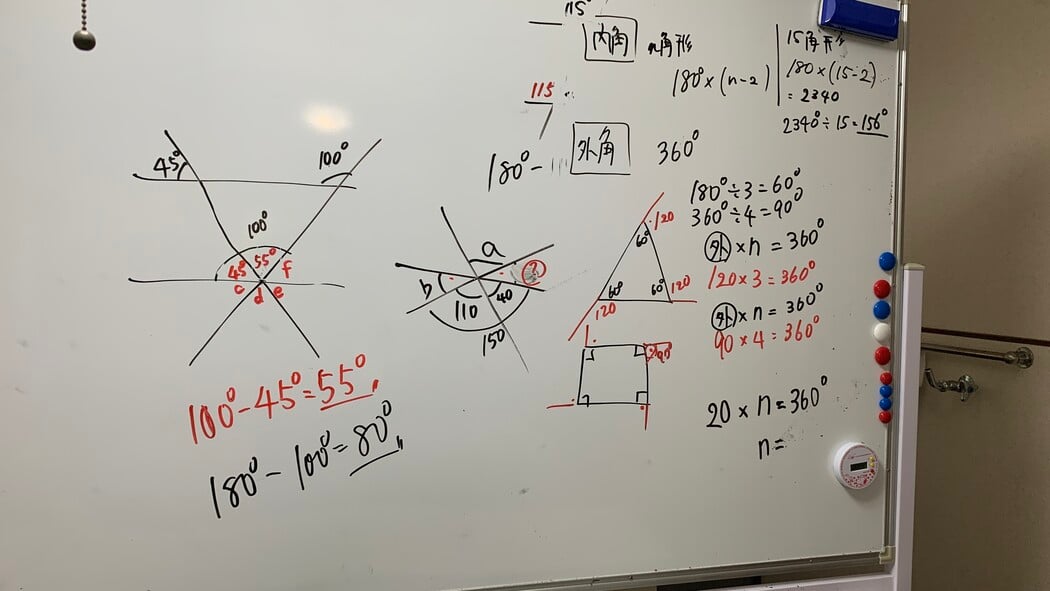 45°
100°
100°
45° 55° f
c d e
100°-45°=55°
180°-100°=80°
115°
内角
n角形
180°×(n-2)
15角形
180×(15-2)
=2340
2340°÷15=156°
115
180°-
外角
360°
a
b
110
40
150
120
60°
60°
60°
120
120
180°÷3=60°
360°÷4=90°
外×n=360°
120×3=360°
外×n=360°
90×4=360°
20×n=360°
n=